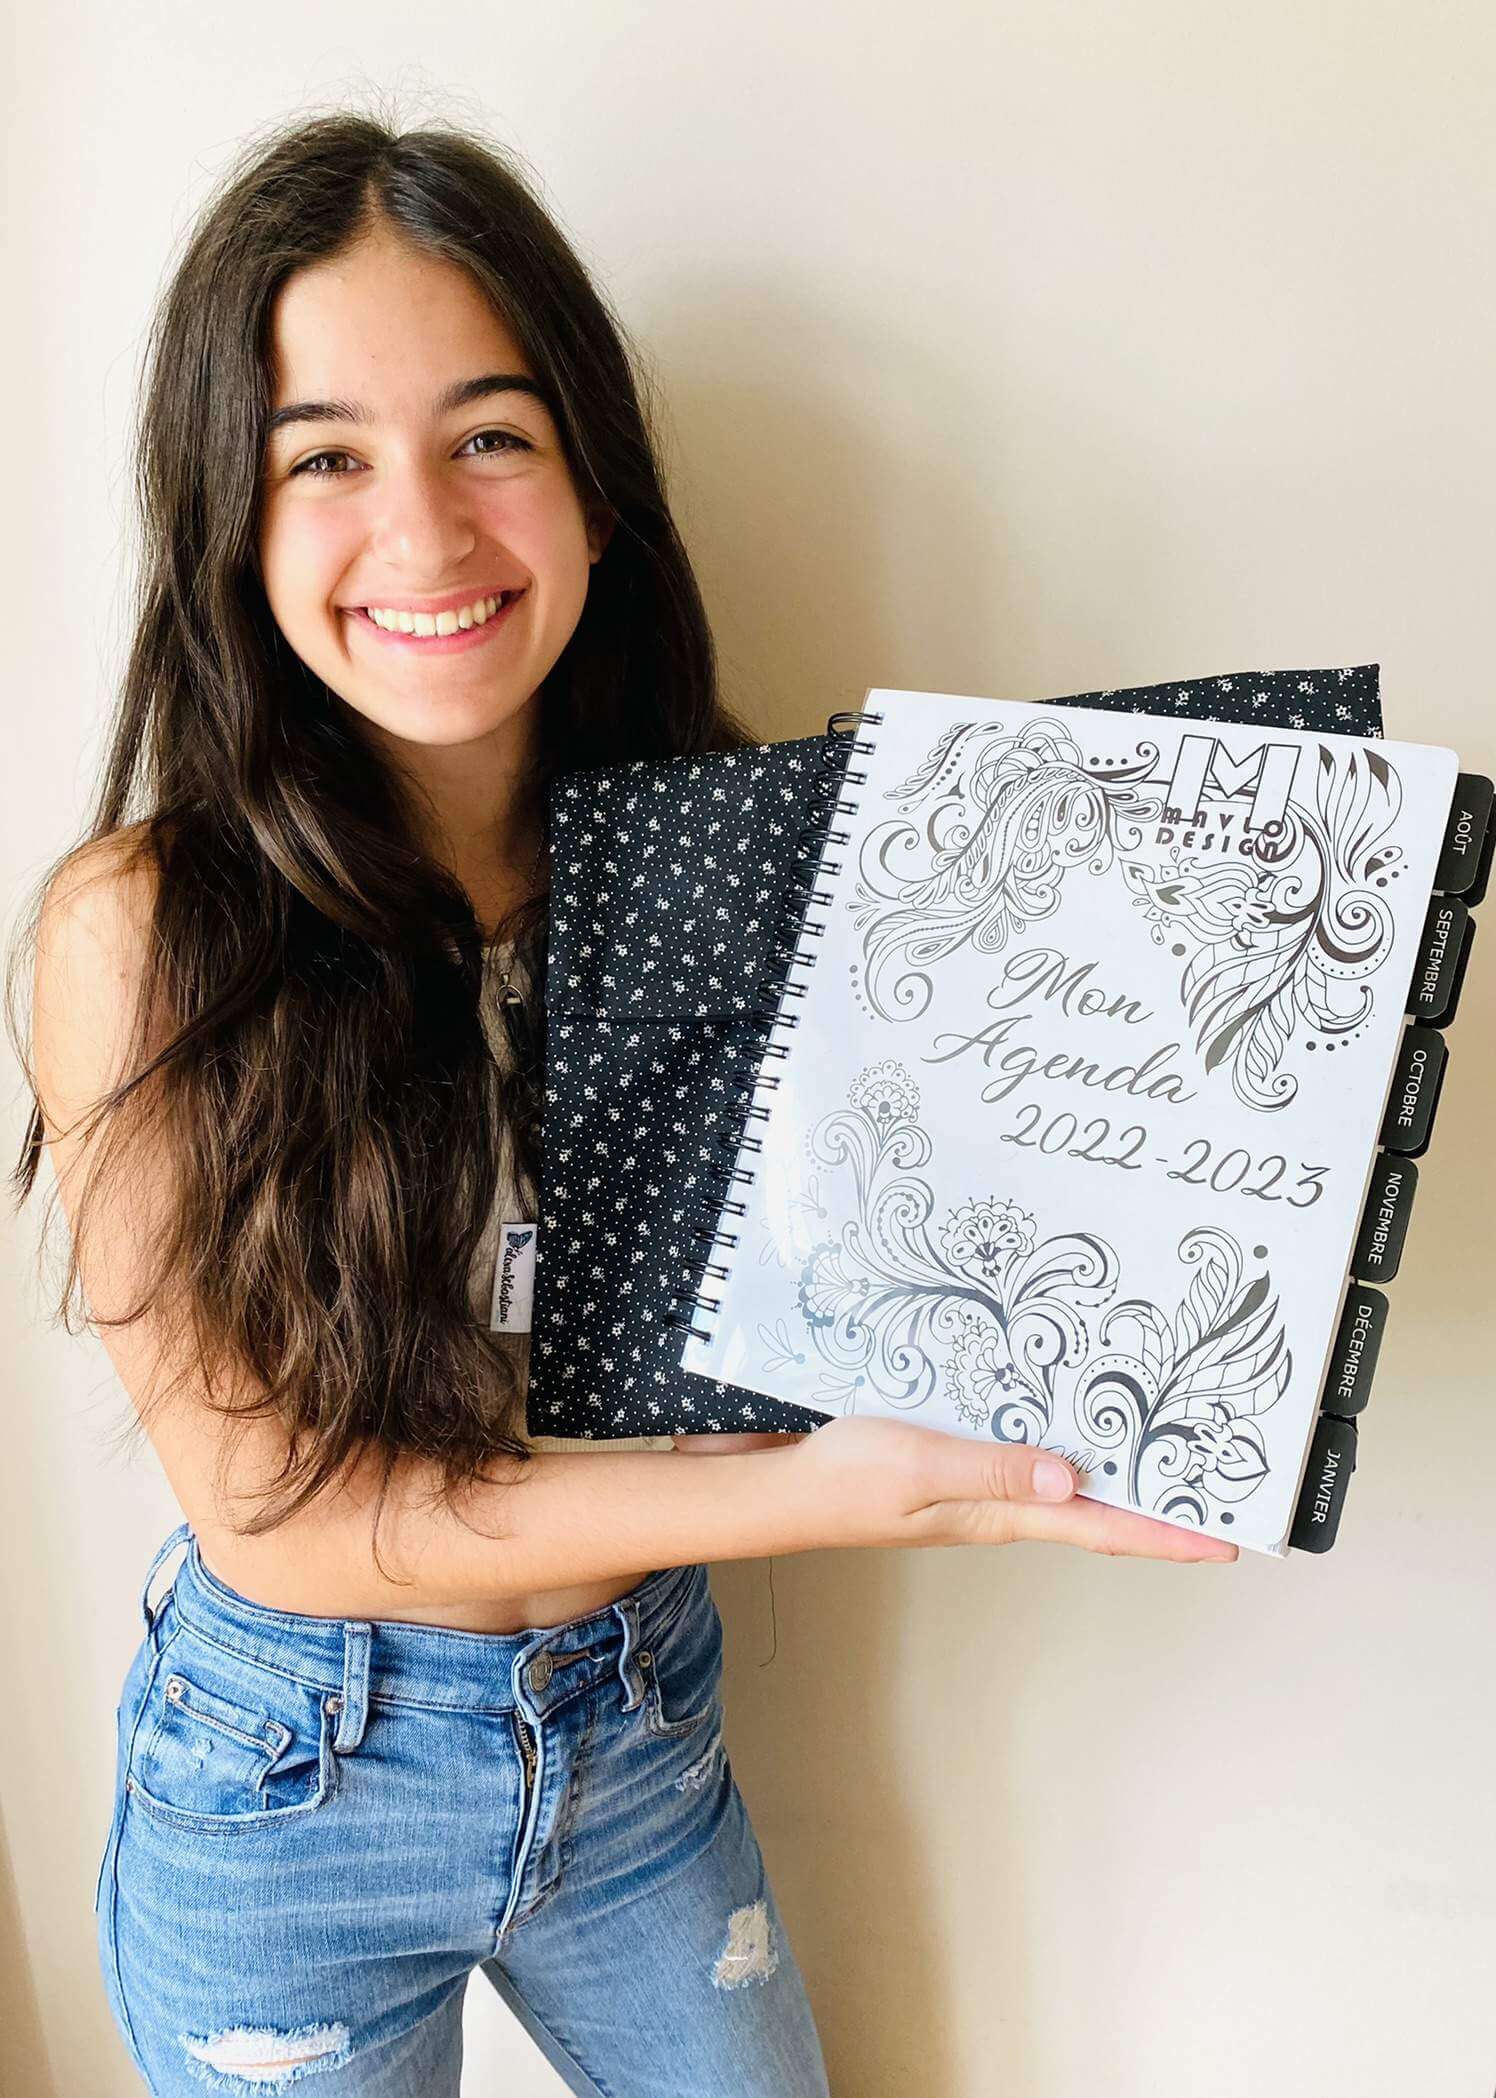 M
MAVLO
DESIGN
Mon
Agenda
2022-2023
AOÛT
SEPTEMBRE
OCTOBRE
NOVEMBRE
DÉCEMBRE
JANVIER